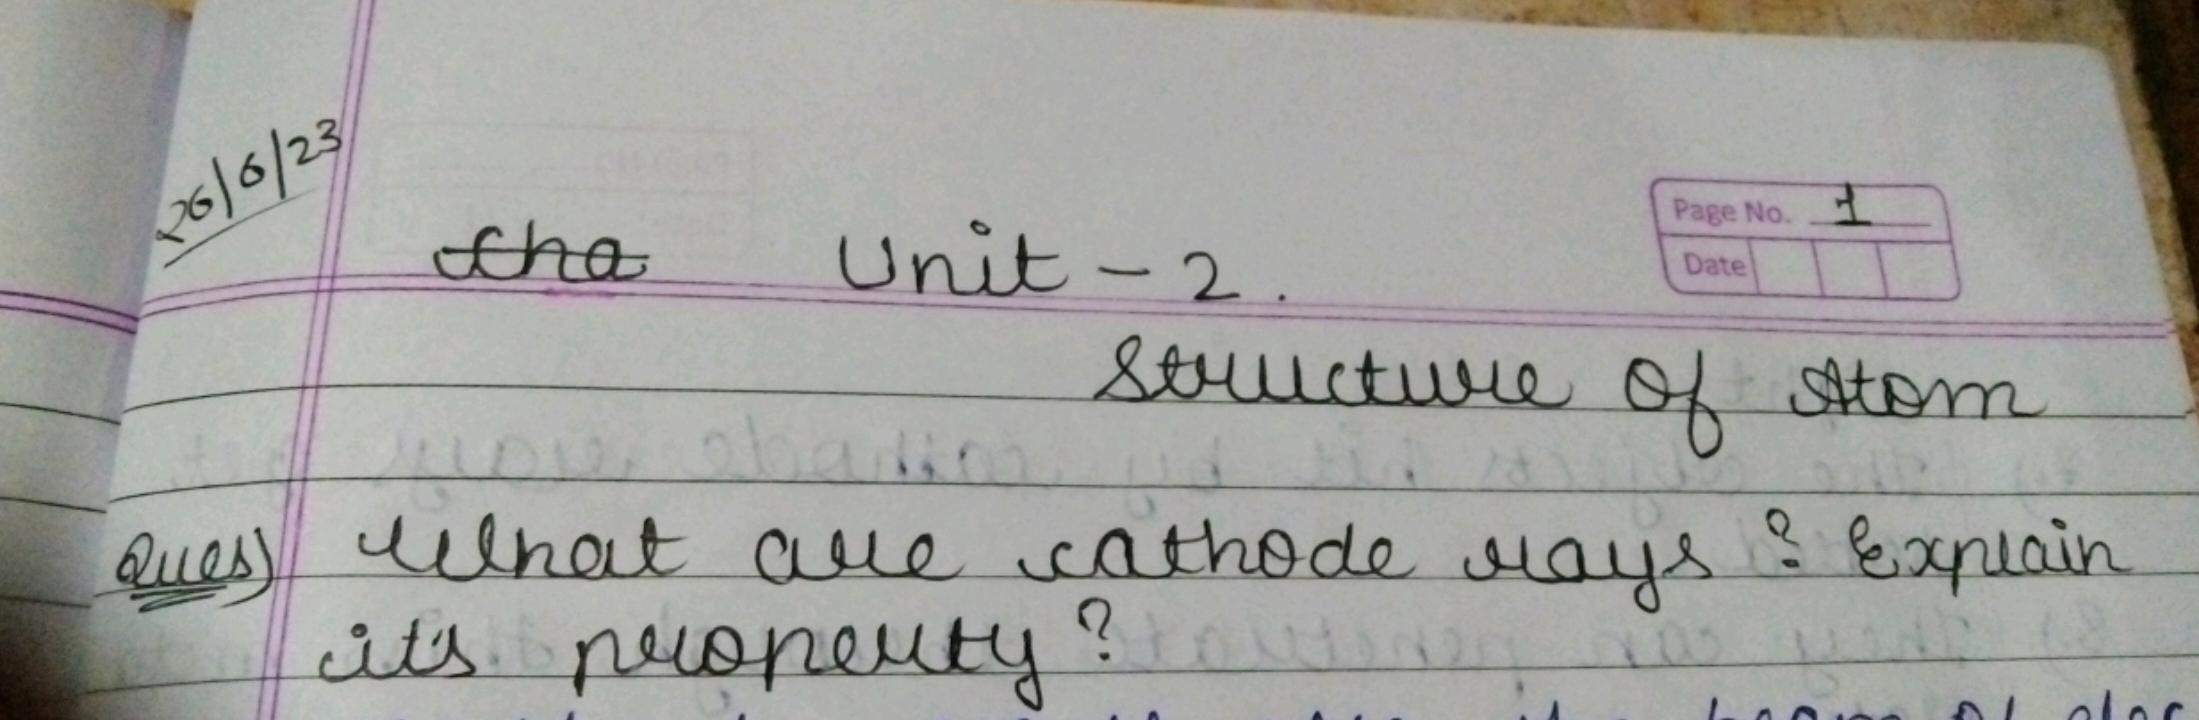 26/6/23
Page No. 1
tha Unit - 2.
Date
Structure Of Atom
Ques) What are cathode rays? Explain
it's property?